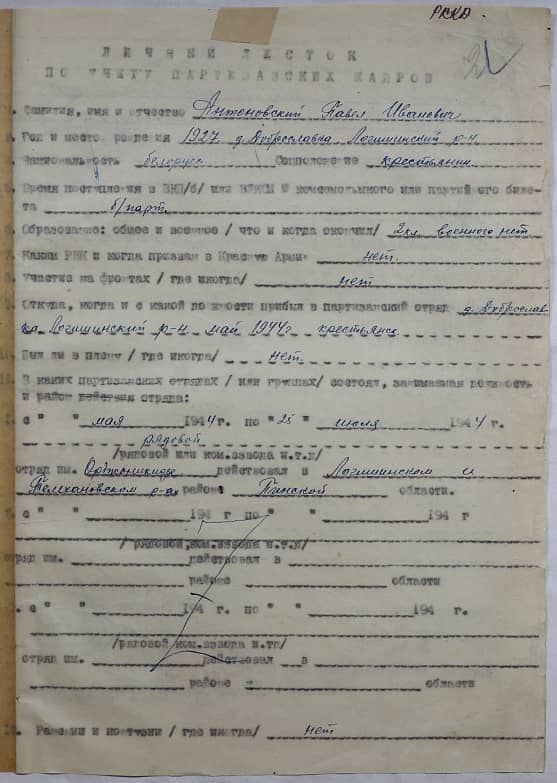 РСКД
2
ЛИЧНЫЙ ЛИСТОК
ПО УЧЕТУ ПАРТИЗАНСКИХ КАДРОВ
. Фамилия, имя и отчество Антоновский Павел Иванович
. Год и место рождения 1927 д. Доброславка Логишинский р-н
Национальность белорус Соцположение крестьянин
. Время поступления в ВКП/б/ или ВЛКСМ № комсомольского или партийного биле-
та б/парт
. Образование: общее и военное / что и когда окончил/ 2кл. военного нет
. Каким РВК и когда призван в Красную Армию нет.
. Участие на фронтах / где и когда/ нет
. Откуда, когда и с какой должности прибыл в партизанский отряд д. Доброслав
ка Логишинский р-н. май 1944г крестьянс.
. Был ли в плену / где и когда/ нет.
11. В каких партизанских отрядах / или группах/ состоял, занимаемая должность
и район действия отряда:
1. с " " мая 1944 г. по "25" июля 1944 г.
рядовой
/рядовой или ком.взвода и.т.д/
отряд им. Орджоникидзе действовал в Логишинском и
Телехановском р-ах районе Пинской области.
2. с " " 194 г по " " 194 г
/ рядовой, ком.взвода и.т.д/
отряд им. действовал в
районе области
. с " " 194 г. по " " 194 г.
/рядовой ком.взвода и.тд/
отряд им. действовал в
районе области
12. Ранении и контузии / где и когда/ нет